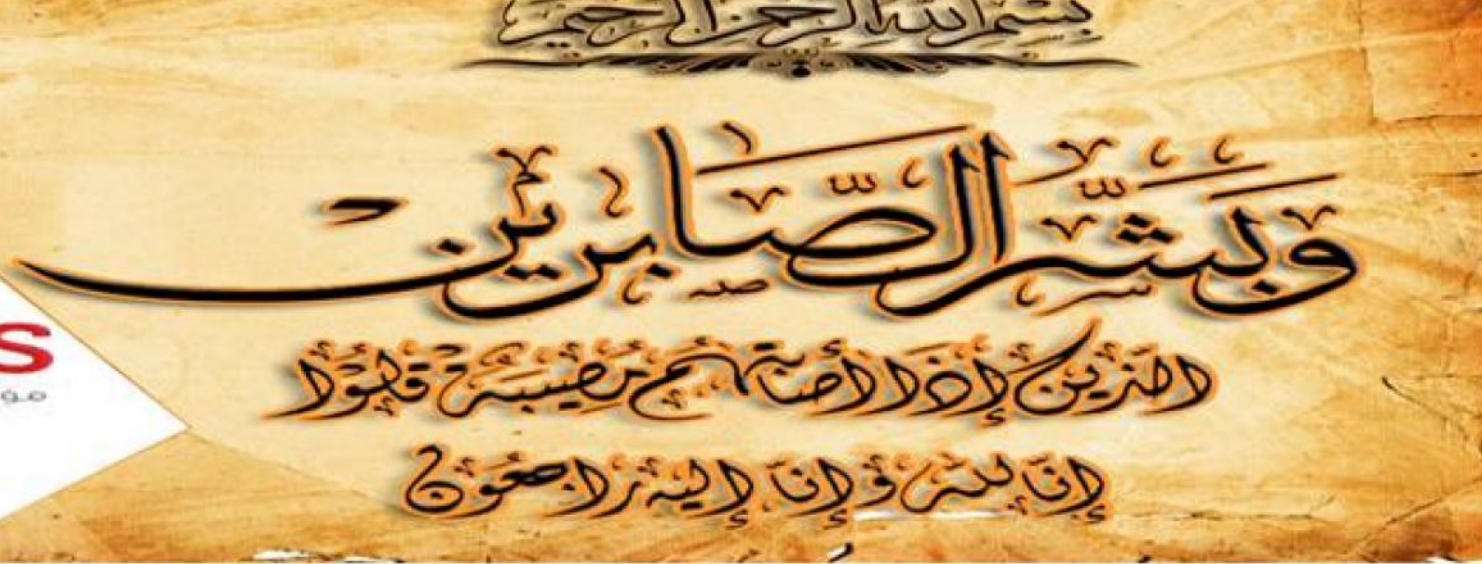 بسم الله الرحمن الرحيم
وَبَشِّرِ الصَّابِرِينَ
الَّذِينَ إِذَا أَصَابَتْهُم مُّصِيبَةٌ قَالُوا
إِنَّا لِلَّهِ وَإِنَّا إِلَيْهِ رَاجِعُونَ
S
مؤ